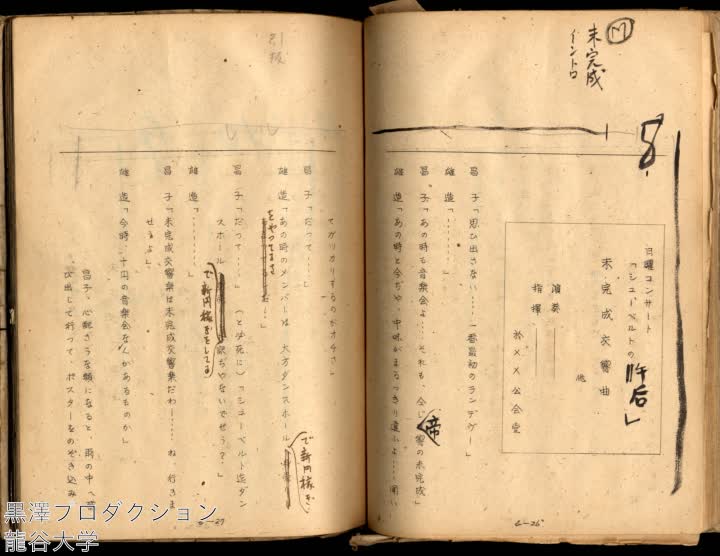 M
未完成
イントロ
8
日曜コンサート
「シューベルトの午后」
未完成交響曲
他
演奏
指揮
於××公会堂
昌子「思ひ出さない……一番最初のランデヴー」
雄造「………」
昌子「あの時も音楽会よ……それも、同じ響の未完成」
帝
雄造「あの時と今ぢや、中味がまるつきり違ふよ……聞い
2-26
引抜
てガツカリするのがオチさ」
昌子「だって……」
雄造「あの時のメンバーは大方ダンスホール
で新円稼ぎ
をやってるさ
…」
昌子「だって……」(と必死に)「シューベルト迄ダン
スホール
で新円稼ぎをしてる
訳ぢやないでせう?」
雄造「………」
昌子「未完成交響楽は未完成交響楽だわ……ね、行きま
せうよ」
雄造「今時、十円の音楽会なんかあるものか」
昌子、心配さうな顔になると、雨の中へ
び出して行って、ポスターをのぞき込み
2-27
黒澤プロダクション
龍谷大学